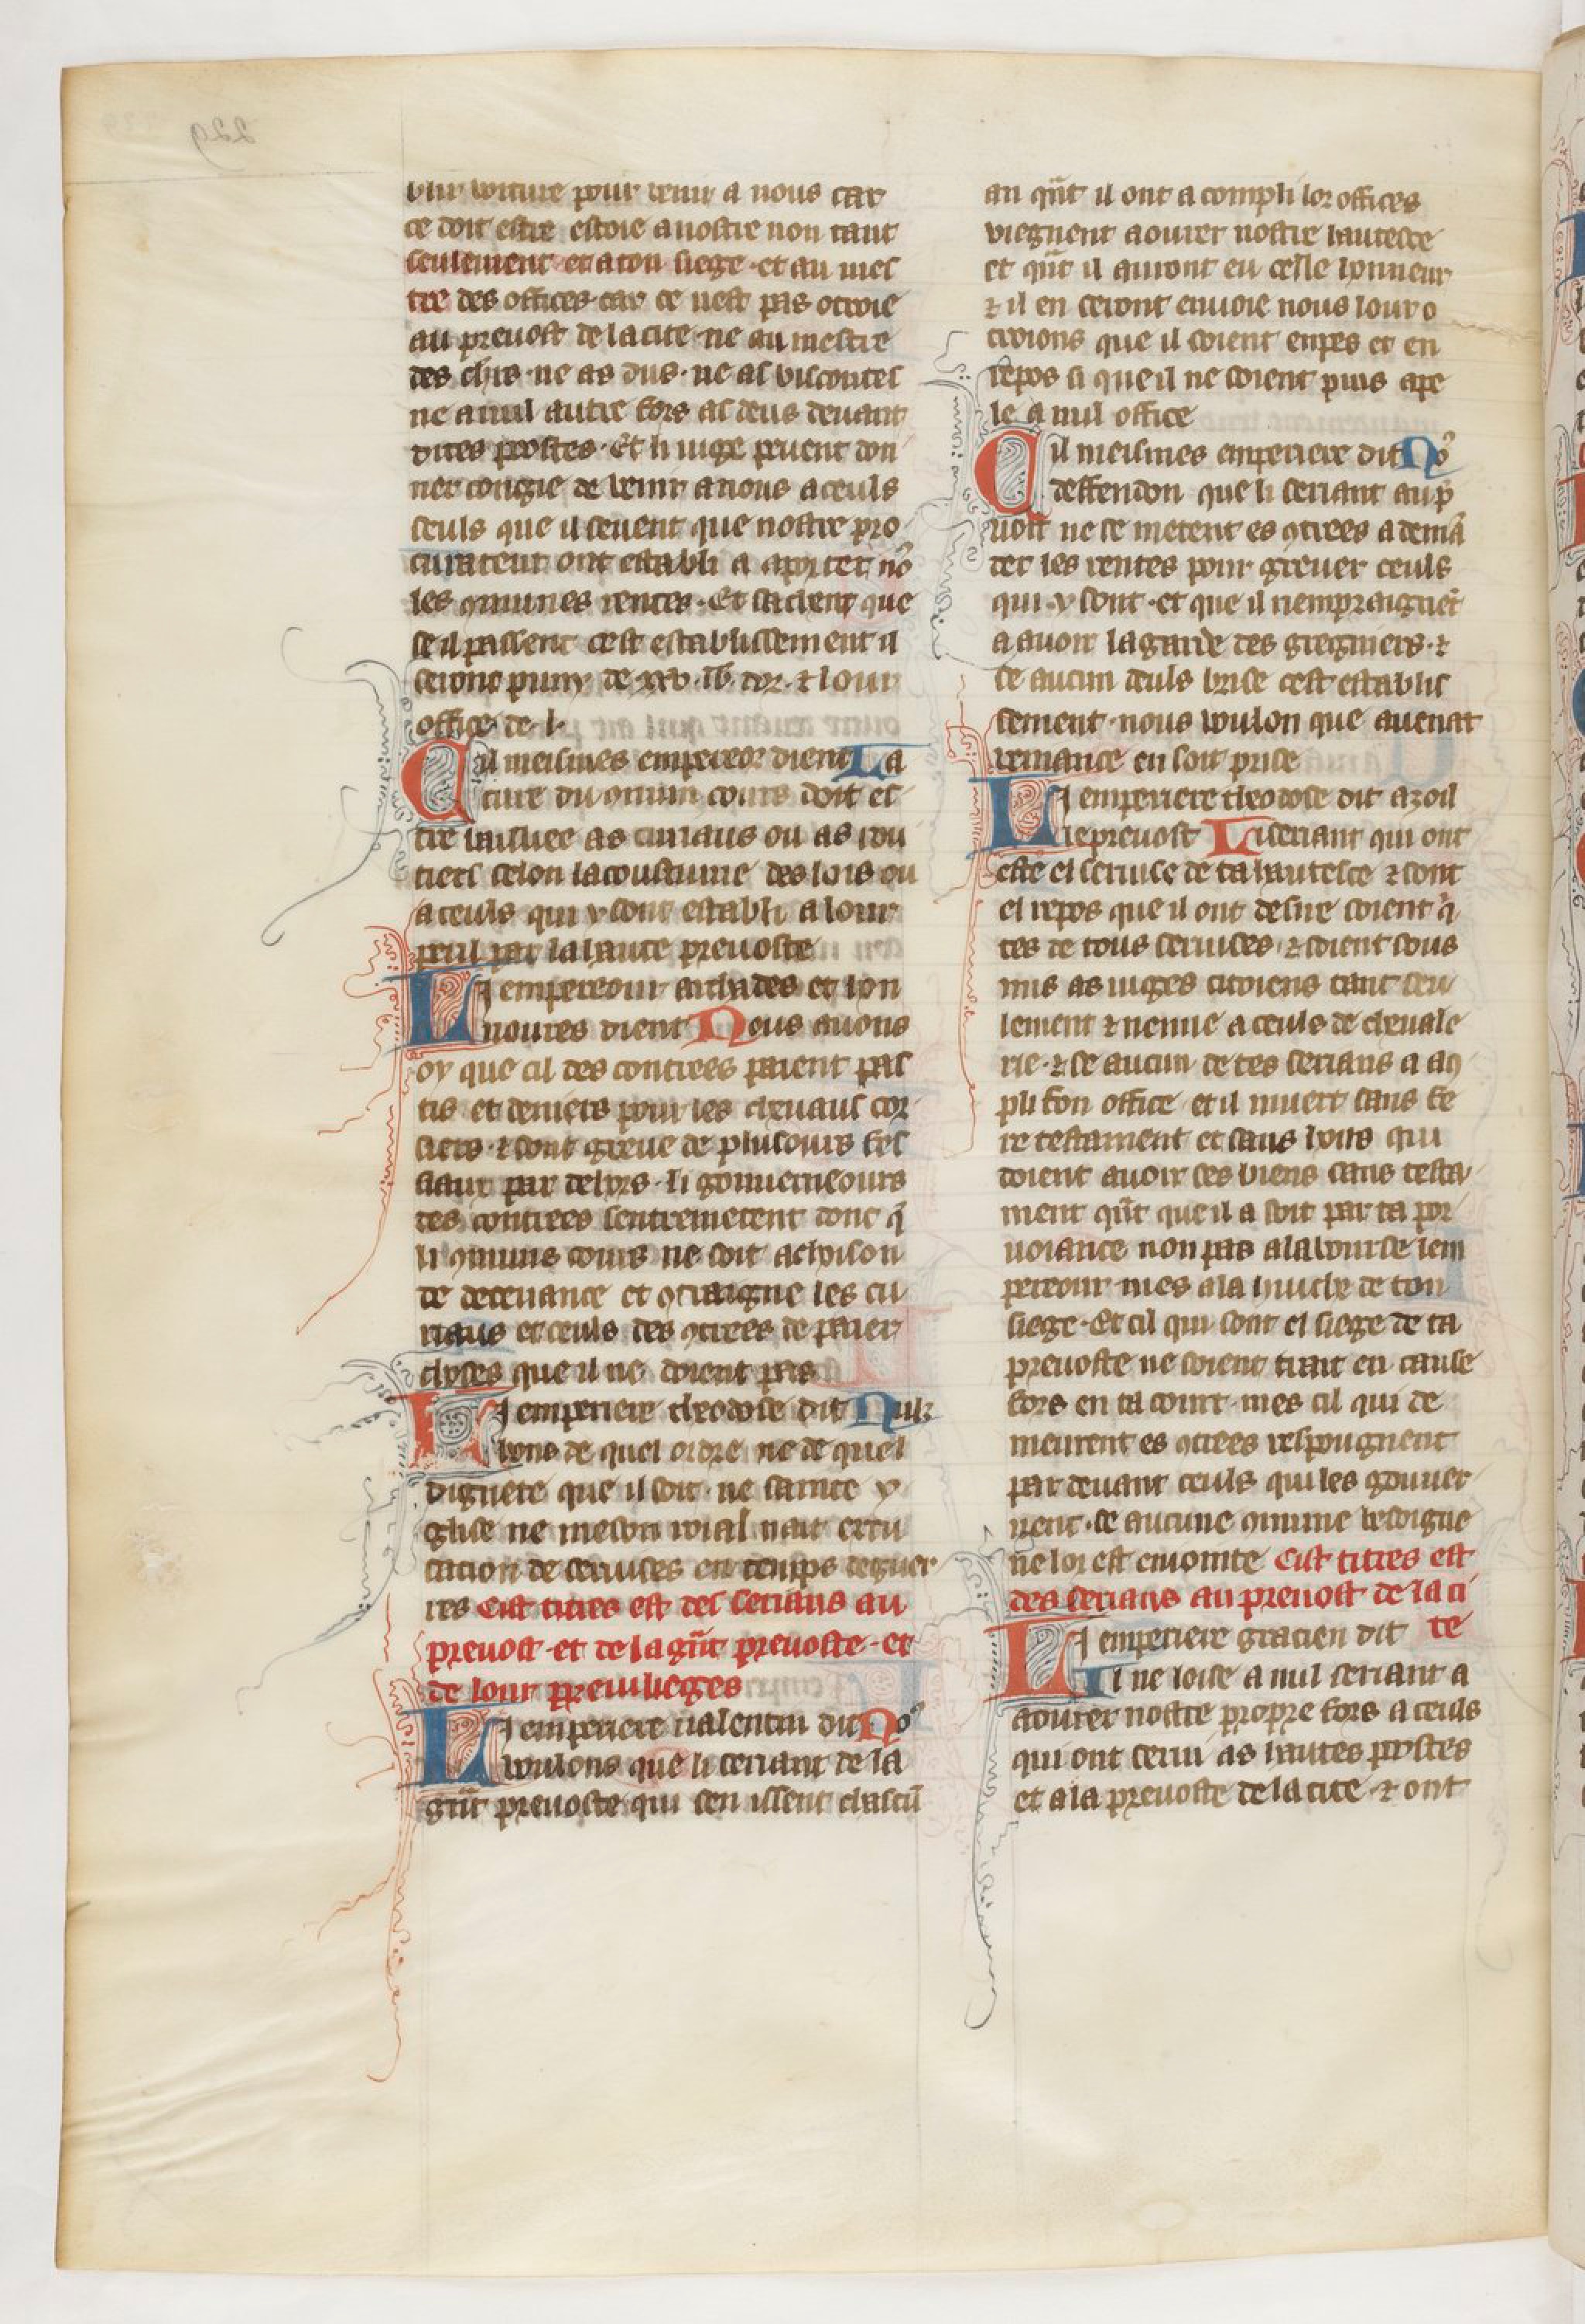 blir voiture pour venir a nous car
ce doit estre estoie a nostre non tant
seulement et a ton siege · et au mes
tre des offices · car ce nest pas otroie
au preuost de la cite · ne au mestre
des chrs · ne as dus · ne as viscontes
ne a nul autre fors as deus deuant
dites postes · Et li iuge peuent don
ner congie de venir a nous a ceuls
seuls que il seuent que nostre pro
curateur ont establi a aporter no9
les 9munes rentes · Et sachent que
se il passent cest establissement il
seront puny de xxv · lb · dor · ⁊ lour
office de · l ·
Cil meismes empereor dient La
cure du 9mun cours doit es
tre laissiee as curiaus ou as rou
tiers selon la coustume des lois ou
a ceuls qui y sont establi a lour
peril par la haute preuoste
Li empereour archades et hon
noures dient Nous auons
oy que cil des contrees paient pas
tis et deniers pour les cheuaus cor
siers · ⁊ sont greue de plusours fes
siaux par dehors · li gouuerneours
des contrees sentremetent donc q̃
li 9muns cours ne soit achoison
de deceuance et 9traigne les cu
riaus et ceuls des 9trees de paier
choses que il ne doient pas
Li emperiere theodose dit Nulz
hons de quel ordre ne de quel
dignete que il soit · ne sainte y
glise ne meson roial nait escu
sacion de seruises en temps de guer
res Cist titres est des serians au
preuost · et de la gñt preuoste · et
de lour preuilieges
Li emperiere valentin dit No9
voulons que li seriant de la
gñt preuoste qui sen issent chascũ
an qñt il ont acompli lor offices
viegnent aourer nostre hautesce
et qñt il auront eu celle honneur
⁊ il en seront enuoie nous lour o
troions que il soient en pes et en
repos si que il ne soient puis ape
le a nul office
Cil meismes emperiere dit No9
deffendon que li seriant au p
uost ne se metent es 9trees a demã
der les rentes pour greuer ceuls
qui y sont · et que il nempraignẽt
a auoir la garde des greigniers · ⁊
se aucun deuls brise cest establis
sement · nous voulon que auenãt
veniance en soit prise
Li emperiere theodose dit a zoil
le preuost Li seriant qui ont
este el seruise de ta hautesce ⁊ sont
el repos que il ont desire soient q̃
tes de tous seruices · ⁊ soient sous
mis as iuges citoiens tant seu
lement ⁊ nenne a ceuls de cheuale
rie · ⁊ se aucun de tes serians a a9
pli son office et il muert sans fe
re testament et sans hoirs qui
doient auoir ses biens sans testa
ment qñt que il a soit par ta por
uoiance non pas a la bourse lem
pereour mes a la huche de ton
siege · Et cil qui sont el siege de ta
preuoste ne soient trait en cause
fors en ta court · mes cil qui de
meurent es 9trees respongnent
par deuant ceuls qui les gouuer
nent · se aucune 9mune besoigne
ne lor est eniointe Cist titres est
des serians au preuost de la ci
Li emperiere gracien dit te
Il ne loise a nul seriant a
aourer nostre propre fors a ceuls
qui ont serui as hautes postes
et a la preuoste de la cite · ⁊ ont